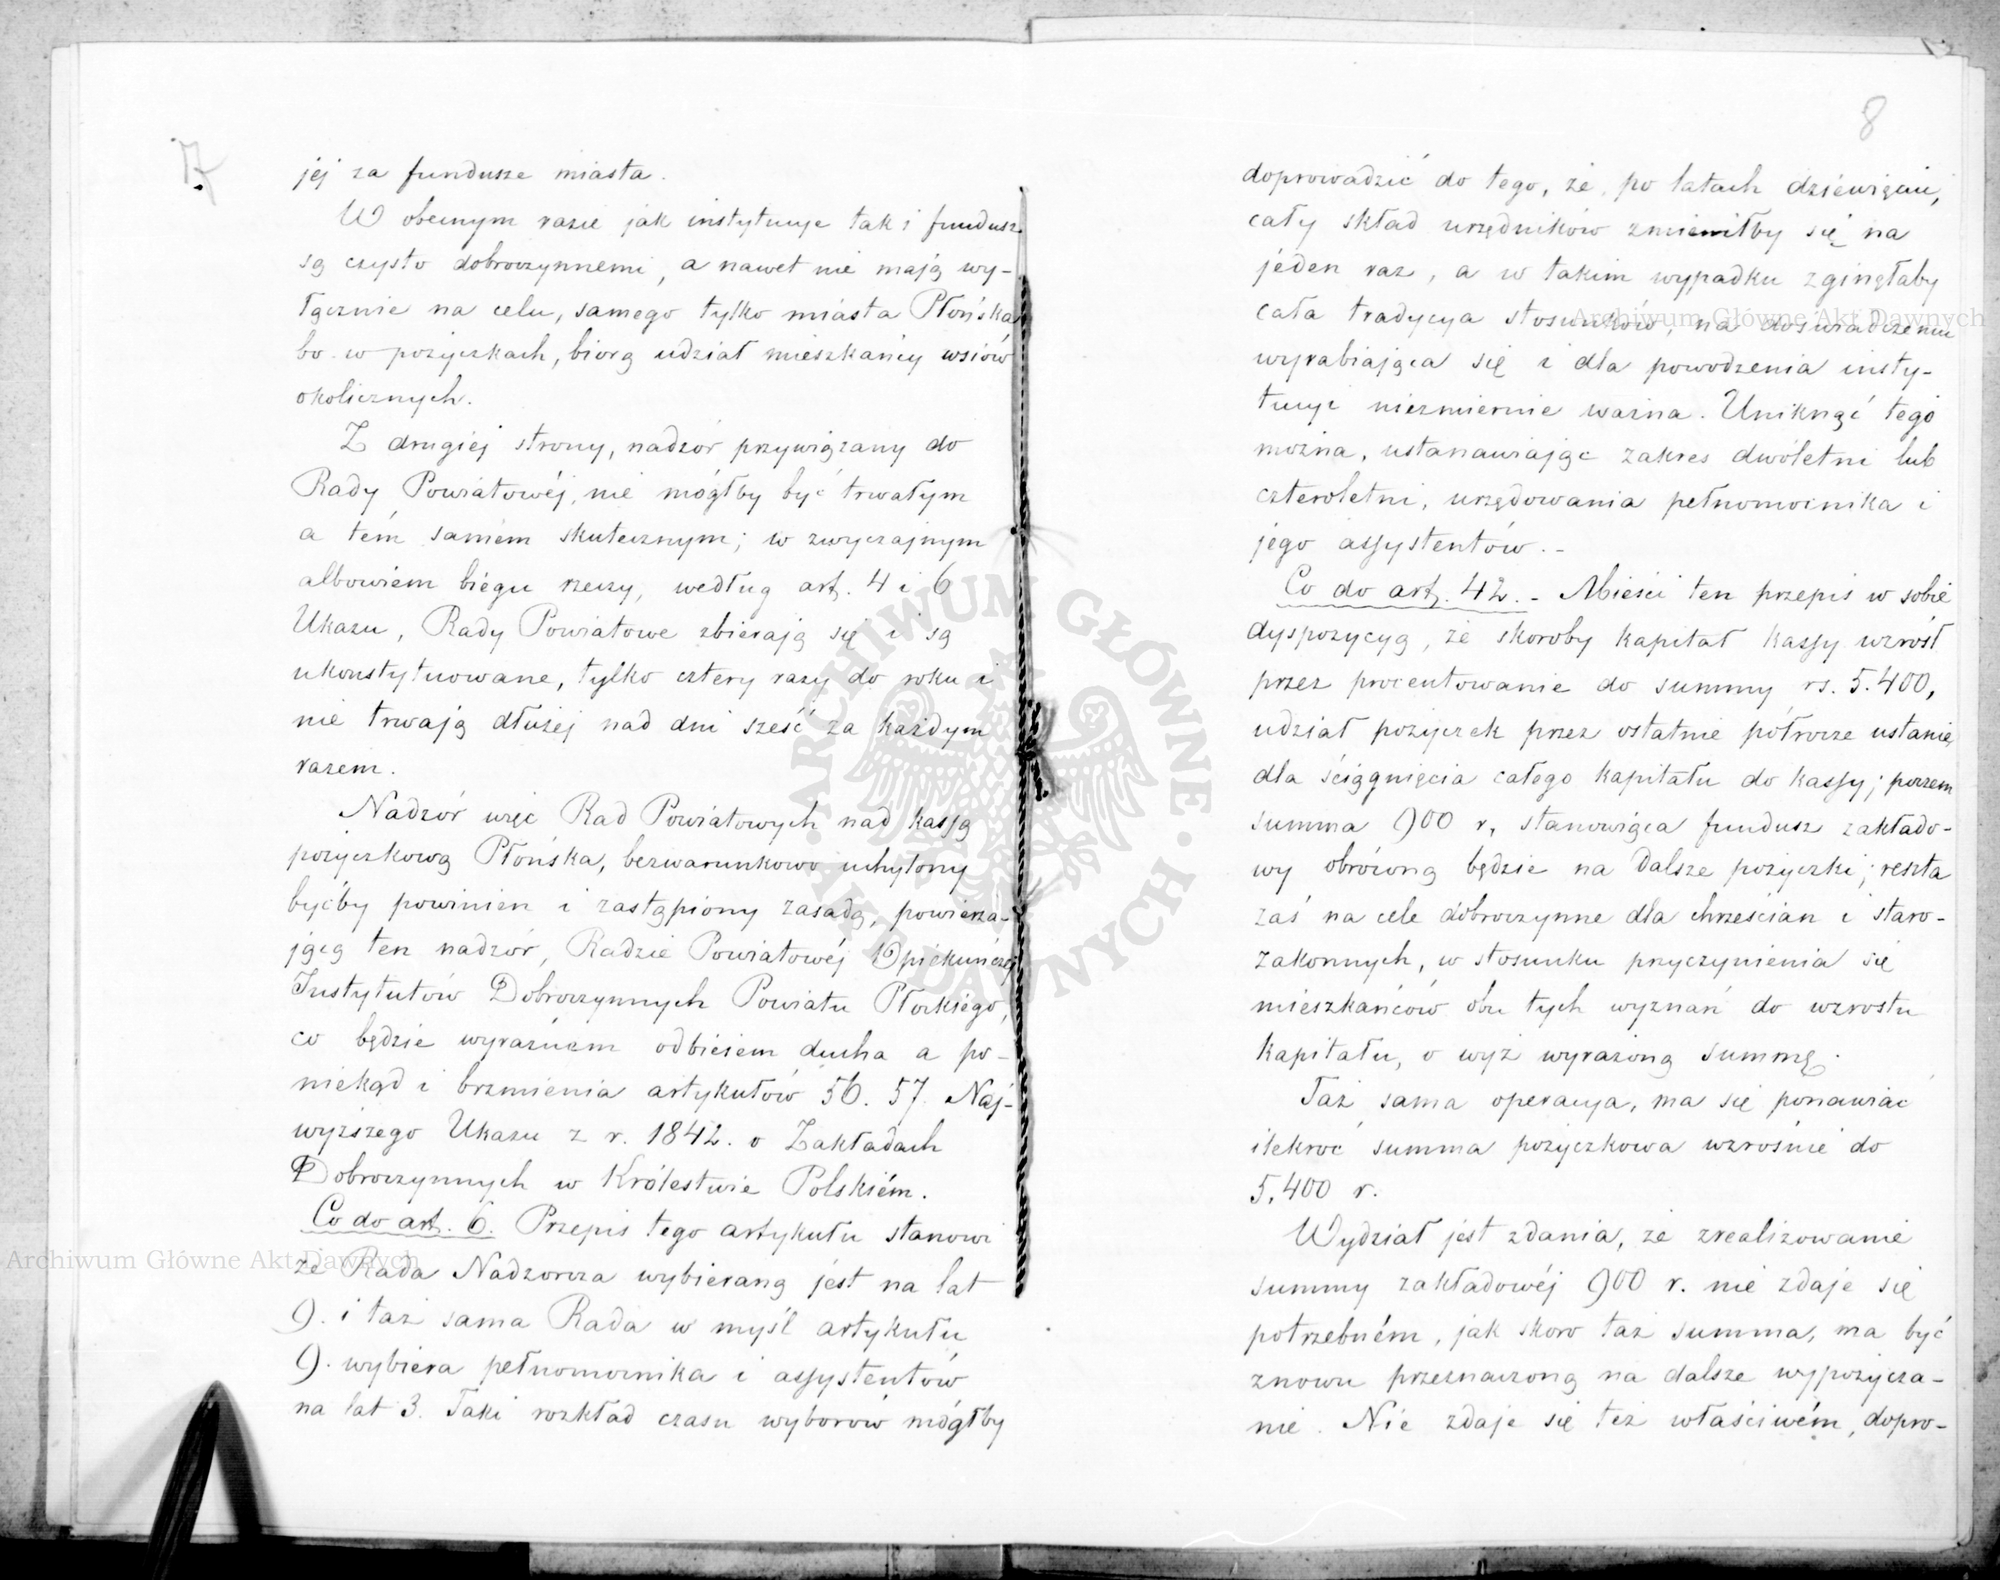 7.
jej za fundusze miasta.
W obecnym razie jak instytucye tak i fundusz
są czysto dobroczynnemi, a nawet nie mają wy-
łącznie na celu, samego tylko miasta Płońska
bo w pożyczkach, biorą udział mieszkańcy wsiów
okolicznych.
Z drugiej strony, nadzór przywiązany do
Rady Powiatowéj, nie mógłby być trwałym
a tém samém skutecznym; w zwyczajnym
albowiem biegu rzeczy, według art. 4 i 6
Ukazu, Rady Powiatowe zbierają się i są
ukonstytuowane, tylko cztery razy do roku i
nie trwają dłużéj nad dni sześć za każdym
razem.
Nadzór więc Rad Powiatowych nad kassą
pożyczkową Płońska, bezwarunkowo uchylony
byćby powinien i zastąpiony zasadą, powierza-
jącą ten nadzór, Radzie Powiatowéj Opiekuńczéj
Instytutów Dobroczynnych Powiatu Płockiego,
co będzie wyraźném odbiciem ducha a po-
niekąd i brzmienia artykułów 56. 57. Naj-
wyższego Ukazu z r. 1842. o Zakładach
Dobroczynnych w Królestwie Polskiém.
Co do art. 6. Przepis tego artykułu stanowi
że Rada Nadzorcza wybieraną jest na lat
9. i taż sama Rada w myśl artykułu
9. wybiera pełnomocnika i assystentów
na lat 3. Taki rozkład czasu wyborów mógłby
8
doprowadzić do tego, że po latach dziewięciu,
cały skład urzędników zmieniłby się na
jeden raz, a w takim wypadku zginęłaby
cała tradycya stosunków, na doświadczeniu
wyrabiająca się i dla powodzenia insty-
tucyi niezmiernie ważna. Uniknąć tego
można, ustanawiając zakres dwóletni lub
czteroletni, urzędowania pełnomocnika i
jego assystentów. -
Co do art. 42. - Mieści ten przepis w sobie
dyspozycyą, że skoroby kapitał kassy wzrósł
przez procentowanie do summy rs. 5.400,
udział pożyczek przez ostatnie półrocze ustanie,
dla ściągnięcia całego kapitału do kassy; poczem
summa 900 r, stanowiąca fundusz zakłado-
wy obróconą będzie na dalsze pożyczki; reszta
zaś na cele dobroczynne dla chrześcian i staro-
zakonnych, w stosunku przyczynienia się
mieszkańców obu tych wyznań do wzrostu
kapitału, o wyż wyrażoną summę.
Taż sama operacya, ma się ponawiać
ilekroć summa pożyczkowa wzrośnie do
5.400 r.
Wydział jest zdania, że zrealizowanie
summy zakładowéj 900 r. nie zdaje się
potrzebném, jak skoro taż summa, ma być
znowu przeznaczoną na dalsze wypożycza-
nie. Nie zdaje się też właściwém, dopro-
Archiwum Główne Akt Dawnych
Archiwum Główne Akt Dawnych
ARCHIWUM GŁÓWNE · AKT DAWNYCH ·